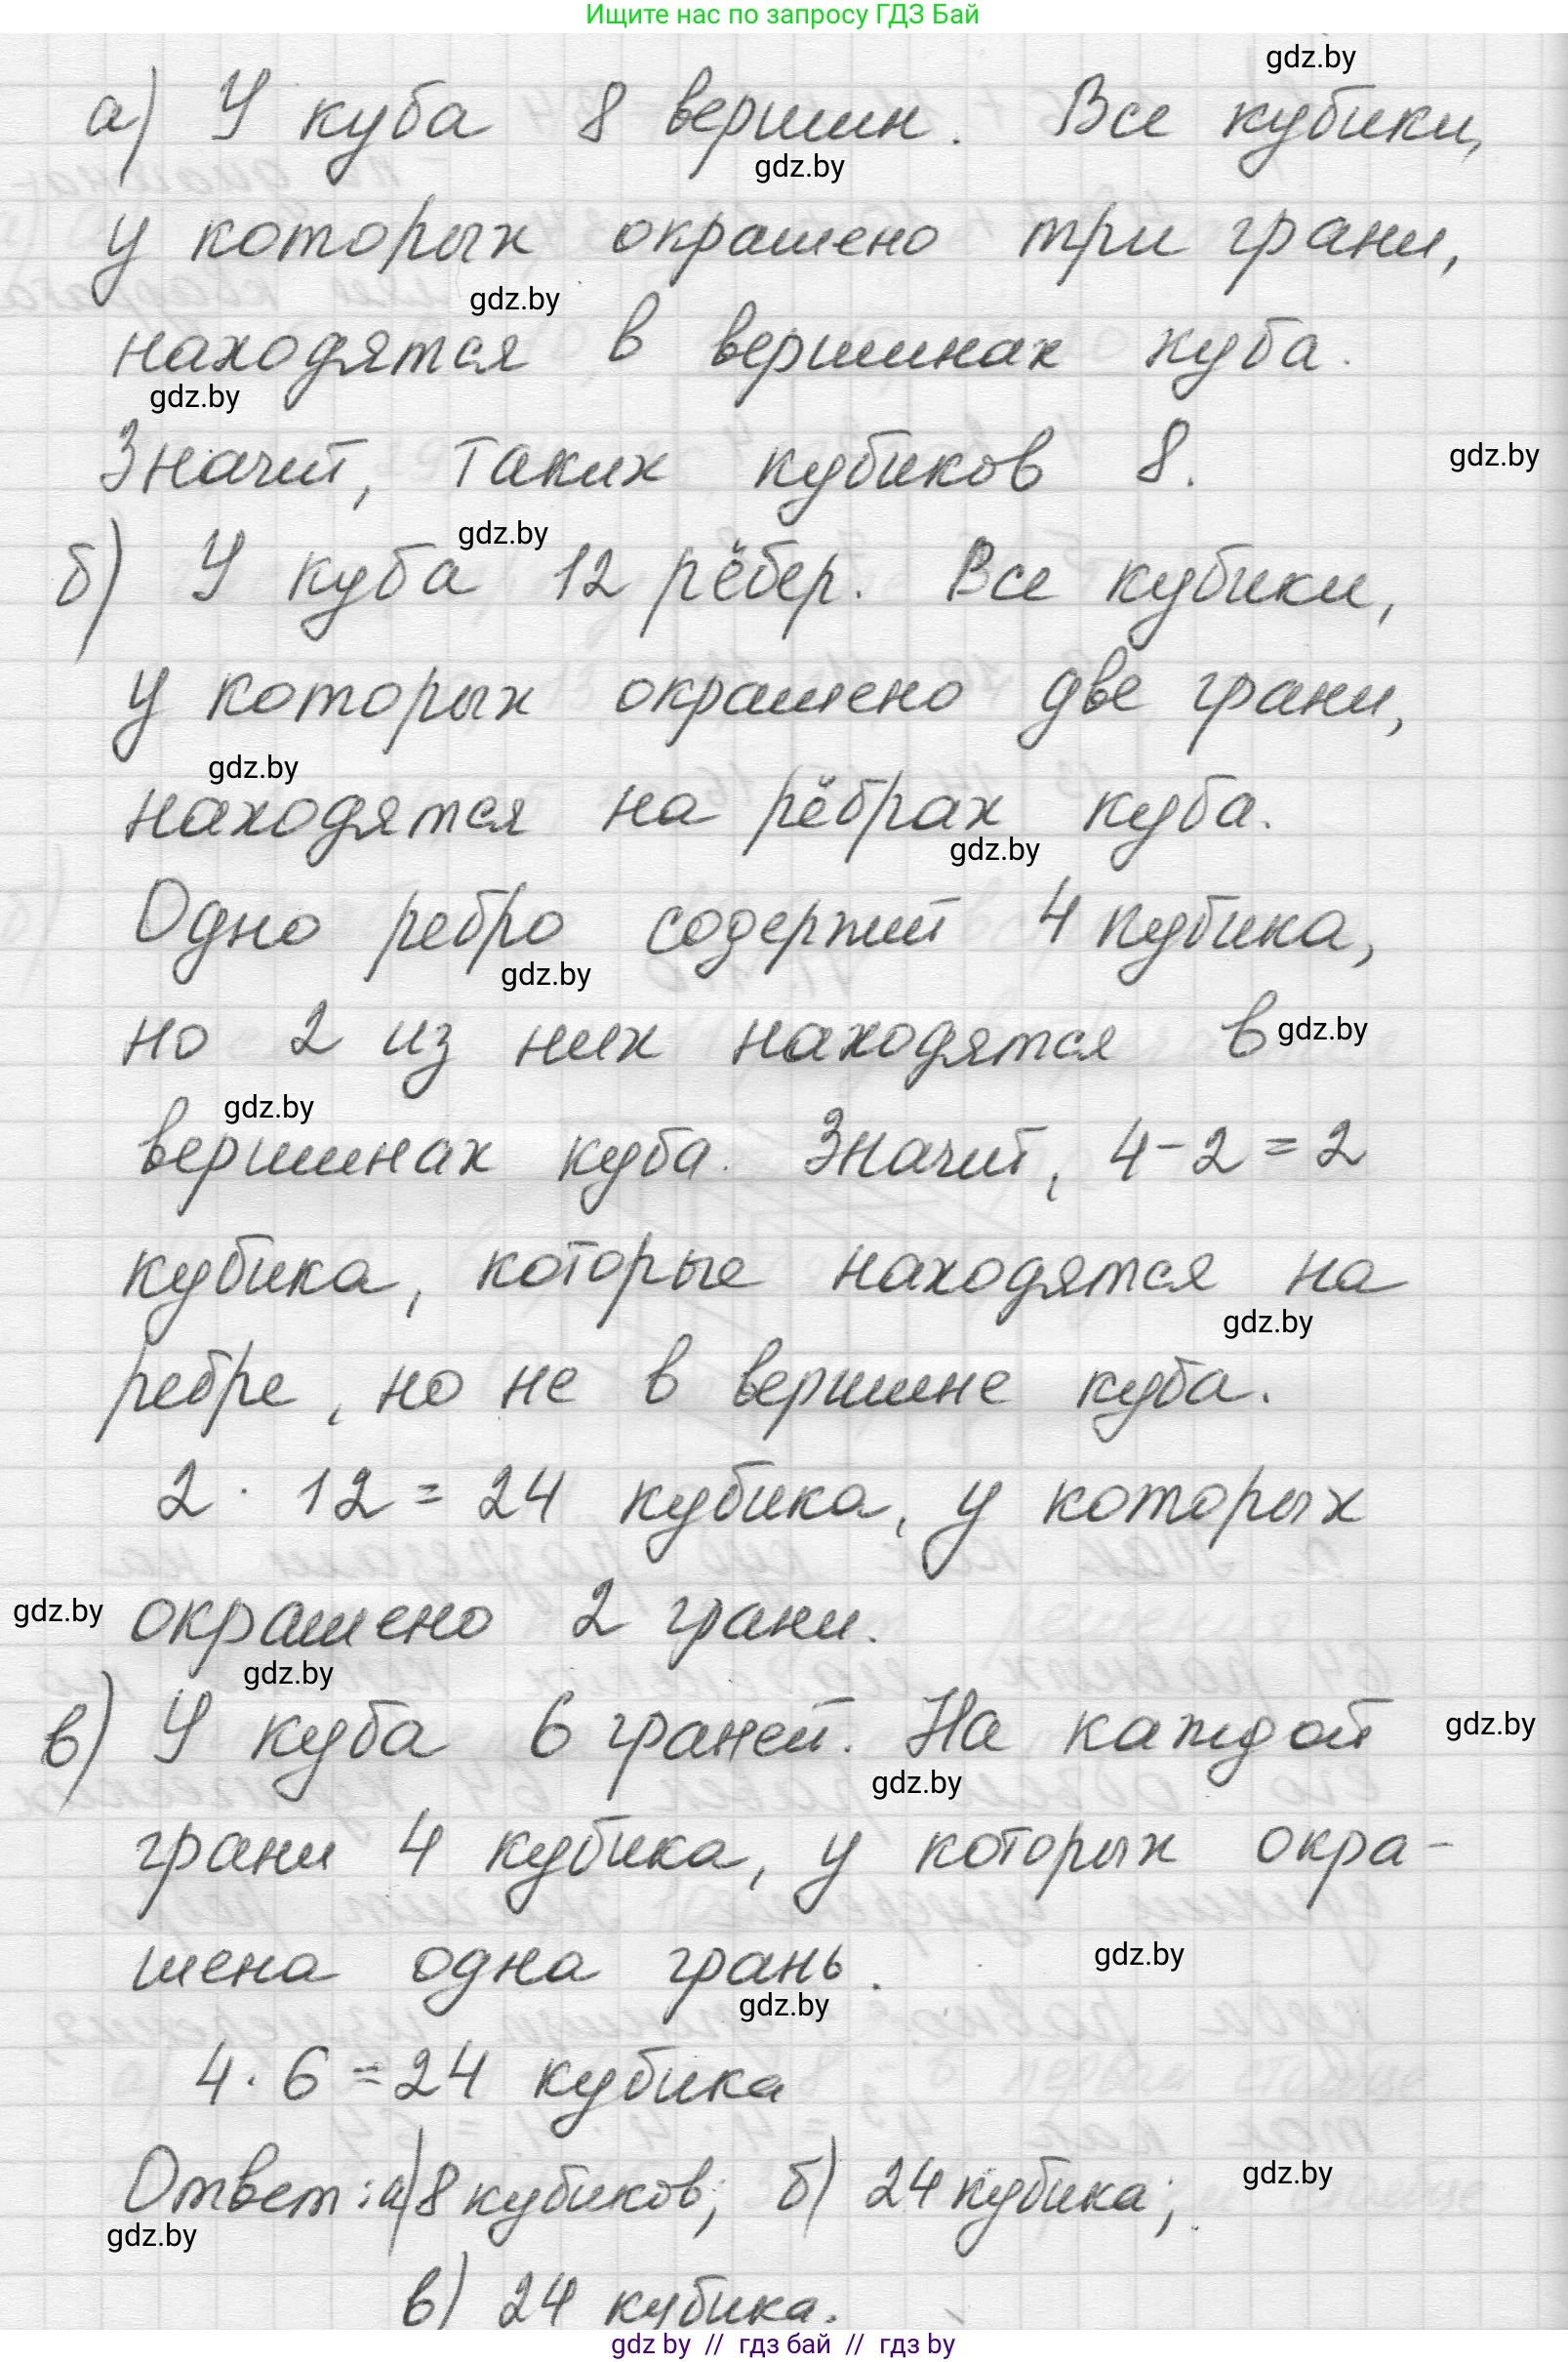 Ищите нас по запросу ГДЗ Бай
gdz.by
а) У куба 8 вершин. Все кубики,
gdz.by
у которых окрашено три грани,
gdz.by
находятся в вершинах куба.
gdz.by
Значит, таких кубиков 8.
gdz.by
gdz.by
б) У куба 12 рёбер. Все кубики,
у которых окрашено две грани,
gdz.by
находятся на рёбрах куба.
gdz.by
Одно ребро содержит 4 кубика,
gdz.by
но 2 из них находятся в
gdz.by
gdz.by
вершинах куба. Значит, 4-2=2
кубика, которые находятся на
gdz.by
ребре, но не в вершине куба.
2 · 12 = 24 кубика, у которых
gdz.by
окрашено 2 грани.
gdz.by
в) У куба 6 граней. На каждой
gdz.by
gdz.by
грани 4 кубика, у которых окра-
шена одна грань.
gdz.by
gdz.by
4 · 6 = 24 кубика
Ответ: а) 8 кубиков; б) 24 кубика;
gdz.by
gdz.by
в) 24 кубика.
gdz by // гдз бай // гдз by